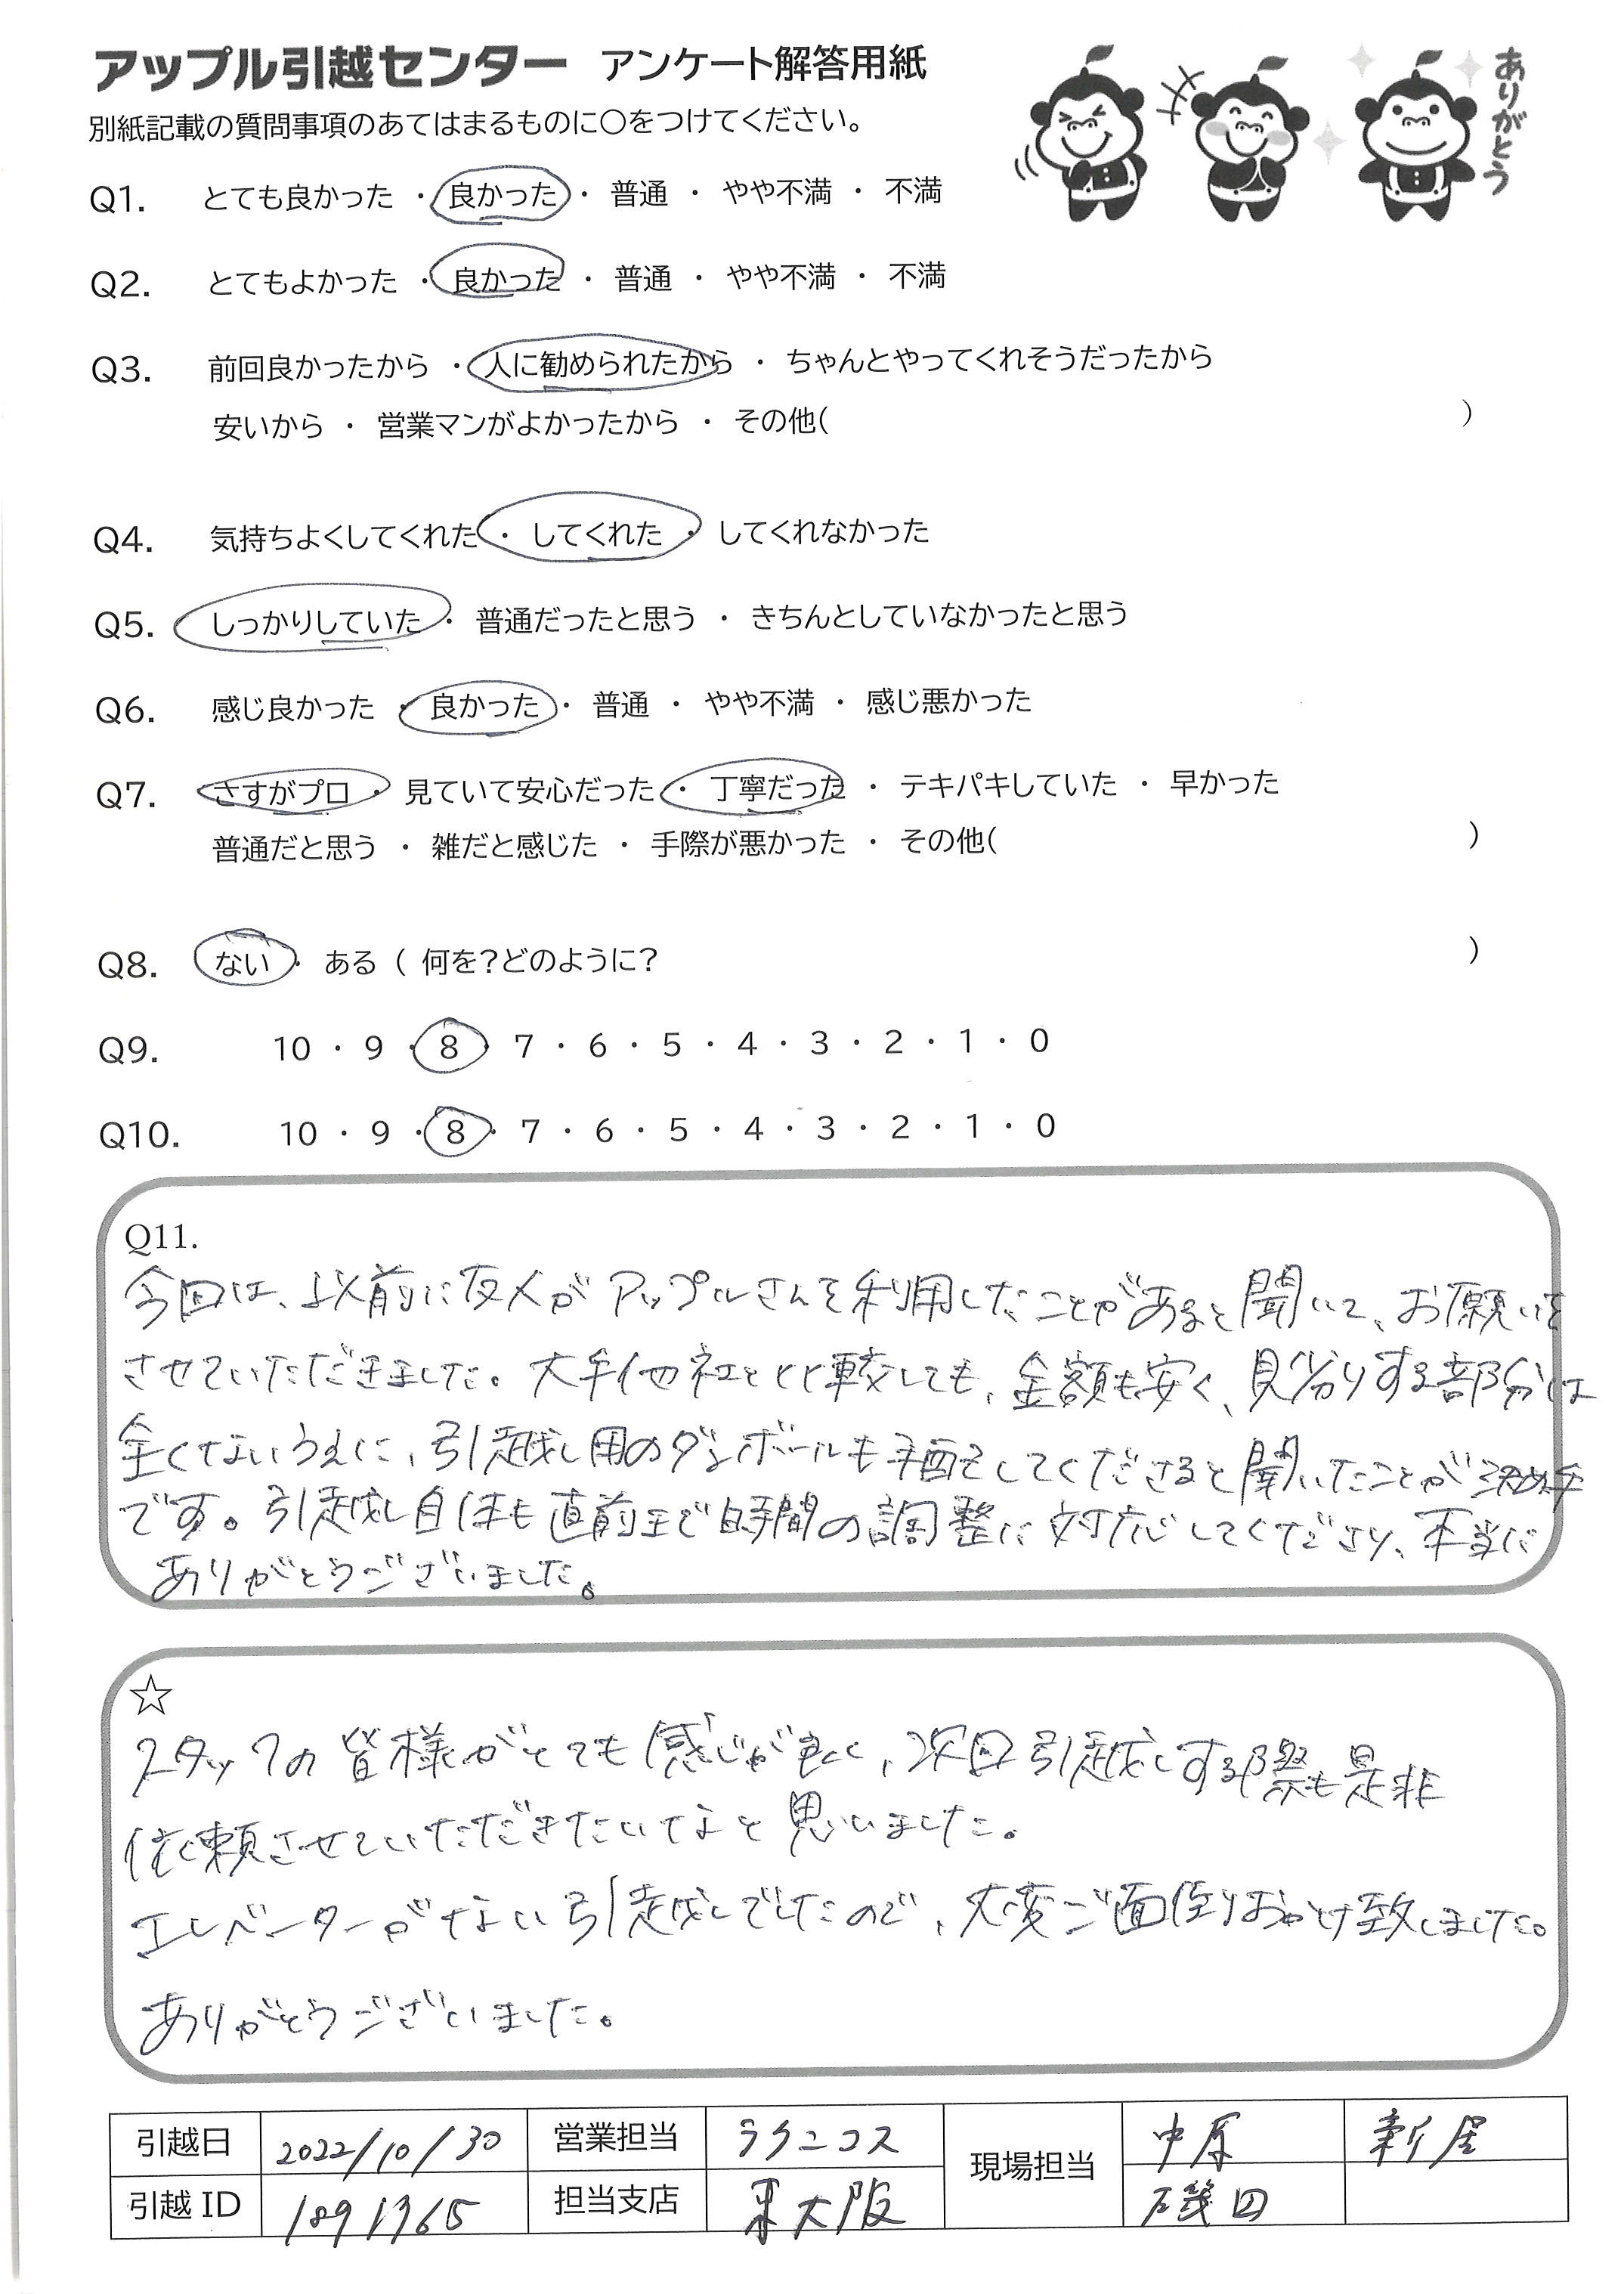 アップル引越センター アンケート解答用紙
ありがとう
別紙記載の質問事項のあてはまるものに○をつけてください。
Q1. とても良かった ・ 良かった ・ 普通 ・ やや不満 ・ 不満
Q2. とてもよかった ・ 良かった ・ 普通 ・ やや不満 ・ 不満
Q3. 前回良かったから ・ 人に勧められたから ・ ちゃんとやってくれそうだったから
安いから ・ 営業マンがよかったから ・ その他( )
Q4. 気持ちよくしてくれた ・ してくれた ・ してくれなかった
Q5. しっかりしていた ・ 普通だったと思う ・ きちんとしていなかったと思う
Q6. 感じ良かった ・ 良かった ・ 普通 ・ やや不満 ・ 感じ悪かった
Q7. さすがプロ ・ 見ていて安心だった ・ 丁寧だった ・ テキパキしていた ・ 早かった
普通だと思う ・ 雑だと感じた ・ 手際が悪かった ・ その他( )
Q8. ない ・ ある ( 何を?どのように? )
Q9. 10 ・ 9 ・ 8 ・ 7 ・ 6 ・ 5 ・ 4 ・ 3 ・ 2 ・ 1 ・ 0
Q10. 10 ・ 9 ・ 8 ・ 7 ・ 6 ・ 5 ・ 4 ・ 3 ・ 2 ・ 1 ・ 0
Q11.
今回は、以前に友人がアップルさんを利用したことがあると聞いて、お願いを
させていただきました。大手他社と比較しても、金額も安く、見劣りする部分は
全くないうえに、引越し用のダンボールも手配をしてくださると聞いたことが決め手
です。引越し自体も直前まで時間の調整に対応してくださり、本当に
ありがとうございました。
☆
スタッフの皆様がとても感じが良く、次回引越しする際も是非
依頼させていただきたいなと思いました。
エレベーターがない引越しでしたので、大変ご面倒おかけ致しました。
ありがとうございました。
引越日 2022/10/30 営業担当 ラクニコス 現場担当 中原 新居
引越ID 1891365 担当支店 東大阪 磯田